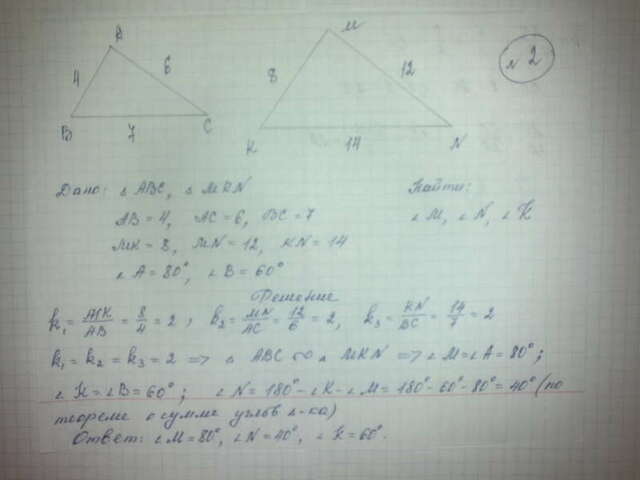 A
M
N 2
4
6
8
12
B
7
C
K
14
N
Дано: △ ABC, △ MKN
Найти:
AB = 4, AC = 6, BC = 7
∠ M, ∠ N, ∠ K
MK = 8, MN = 12, KN = 14
∠ A = 80°, ∠ B = 60°
Решение
k₁ = MK/AB = 8/4 = 2, k₂ = MN/AC = 12/6 = 2, k₃ = KN/BC = 14/7 = 2
k₁ = k₂ = k₃ = 2 => △ ABC ∞ △ MKN => ∠ M = ∠ A = 80°;
∠ K = ∠ B = 60°; ∠ N = 180° - ∠ K - ∠ M = 180° - 60° - 80° = 40° (по
теореме о сумме углов △-ка)
Ответ: ∠ M = 80°, ∠ N = 40°, ∠ K = 60°.